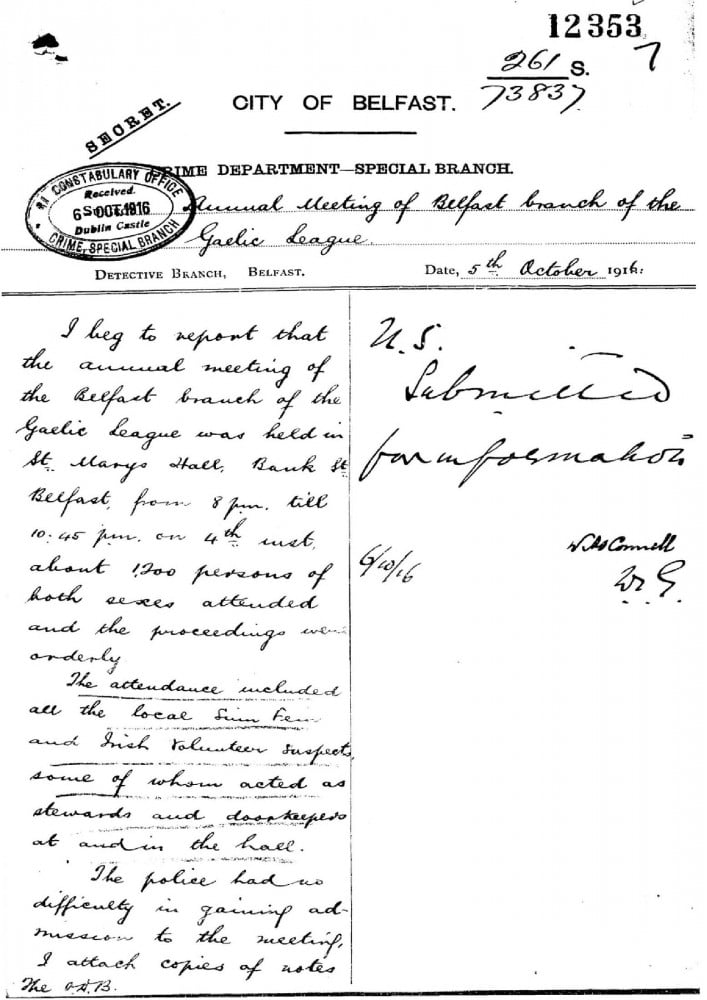 12353
7
261 S.
73837
CITY OF BELFAST.
SECRET.
CRIME DEPARTMENT—SPECIAL BRANCH.
CONSTABULARY OFFICE
Received.
6 OCT. 1916
Dublin Castle
CRIME, SPECIAL BRANCH
Annual Meeting of Belfast branch of the
Gaelic League.
DETECTIVE BRANCH, BELFAST.
Date, 5th October 1916.
I beg to report that
the annual meeting of
the Belfast branch of the
Gaelic League was held in
St. Marys Hall, Bank St
Belfast, from 8 pm. till
10:45 pm. on 4th inst.
about 1,200 persons of
both sexes attended
and the proceedings were
orderly
The attendance included
all the local Sinn Fein
and Irish Volunteer suspects,
some of whom acted as
stewards and doorkeepers
at and in the hall.
The police had no
difficulty in gaining ad-
mission to the meeting.
I attach copies of notes
The
U.S.
Submitted
for information
6/10/16